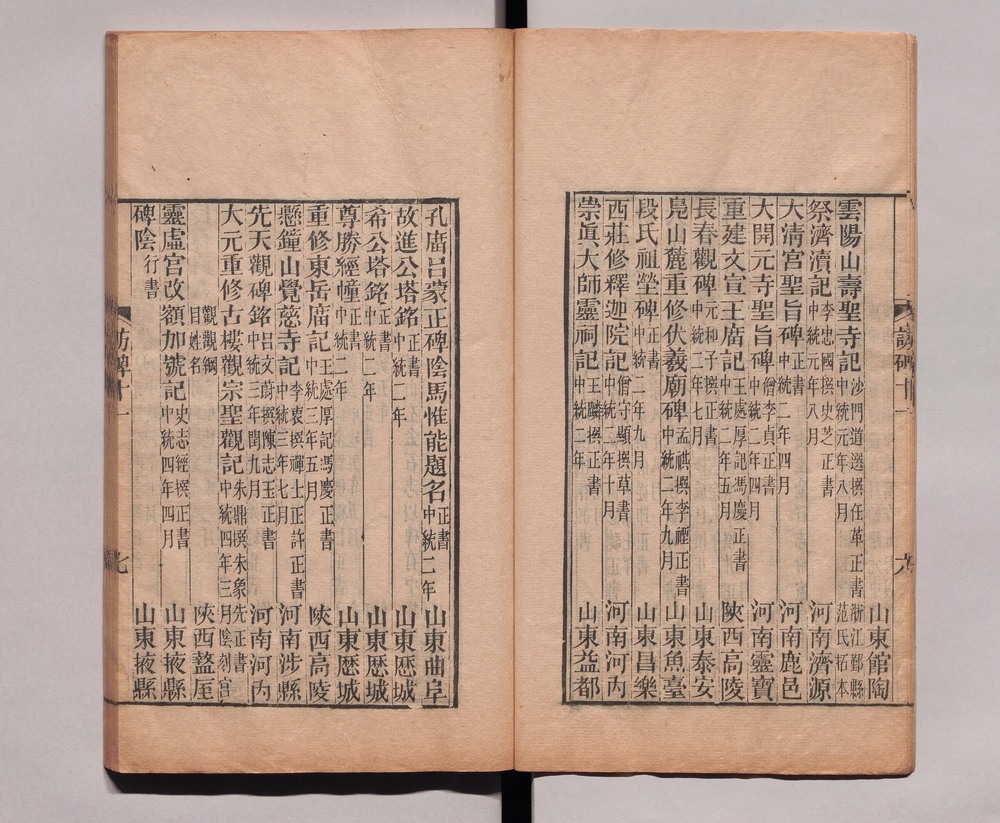 山東館陶
雲陽山壽聖寺記 沙門道選撰任革正書 中統元年八月 浙江鄞縣范氏拓本
祭濟瀆記 李忠國撰史芝正書 中統元年八月 河南濟源
大清宮聖旨碑 正書 中統二年四月 河南鹿邑
大開元寺聖旨碑 僧李貞正書 中統二年四月 河南靈寶
重建文宣王廟記 王處厚記馮慶正書 中統二年五月 陝西高陵
長春觀碑 元和子撰正書 中統二年七月 山東泰安
鳧山麓重修伏羲廟碑 孟祺撰李禋正書 中統二年九月 山東魚臺
段氏祖塋碑 正書 中統二年九月 山東昌樂
西莊修釋迦院記 僧守顯撰草書 中統二年十月 河南河內
崇眞大師靈祠記 王麟撰正書 中統二年 山東益都
訪碑十一 六
孔庿呂蒙正碑陰馬惟能題名 正書 中統二年 山東曲阜
故進公塔銘 正書 中統二年 山東歷城
希公塔銘 正書 中統二年 山東歷城
尊勝經幢 正書 中統二年 山東歷城
重修東岳庿記 王處厚記馮慶正書 中統三年五月 陝西高陵
懸鐘山覺慈寺記 李衷撰禪士正許正書 中統三年七月 河南涉縣
先天觀碑銘 呂文蔚撰陳志玉正書 中統三年閏九月 河南河內
大元重修古樓觀宗聖觀記 朱鼎撰朱象先正書 中統四年三月陰刻宮
觀觀綱目姓名 陝西盩厔
靈虛宮改額加號記 史志經撰正書 中統四年四月 山東掖縣
碑陰 行書 山東掖縣
訪碑十一 七